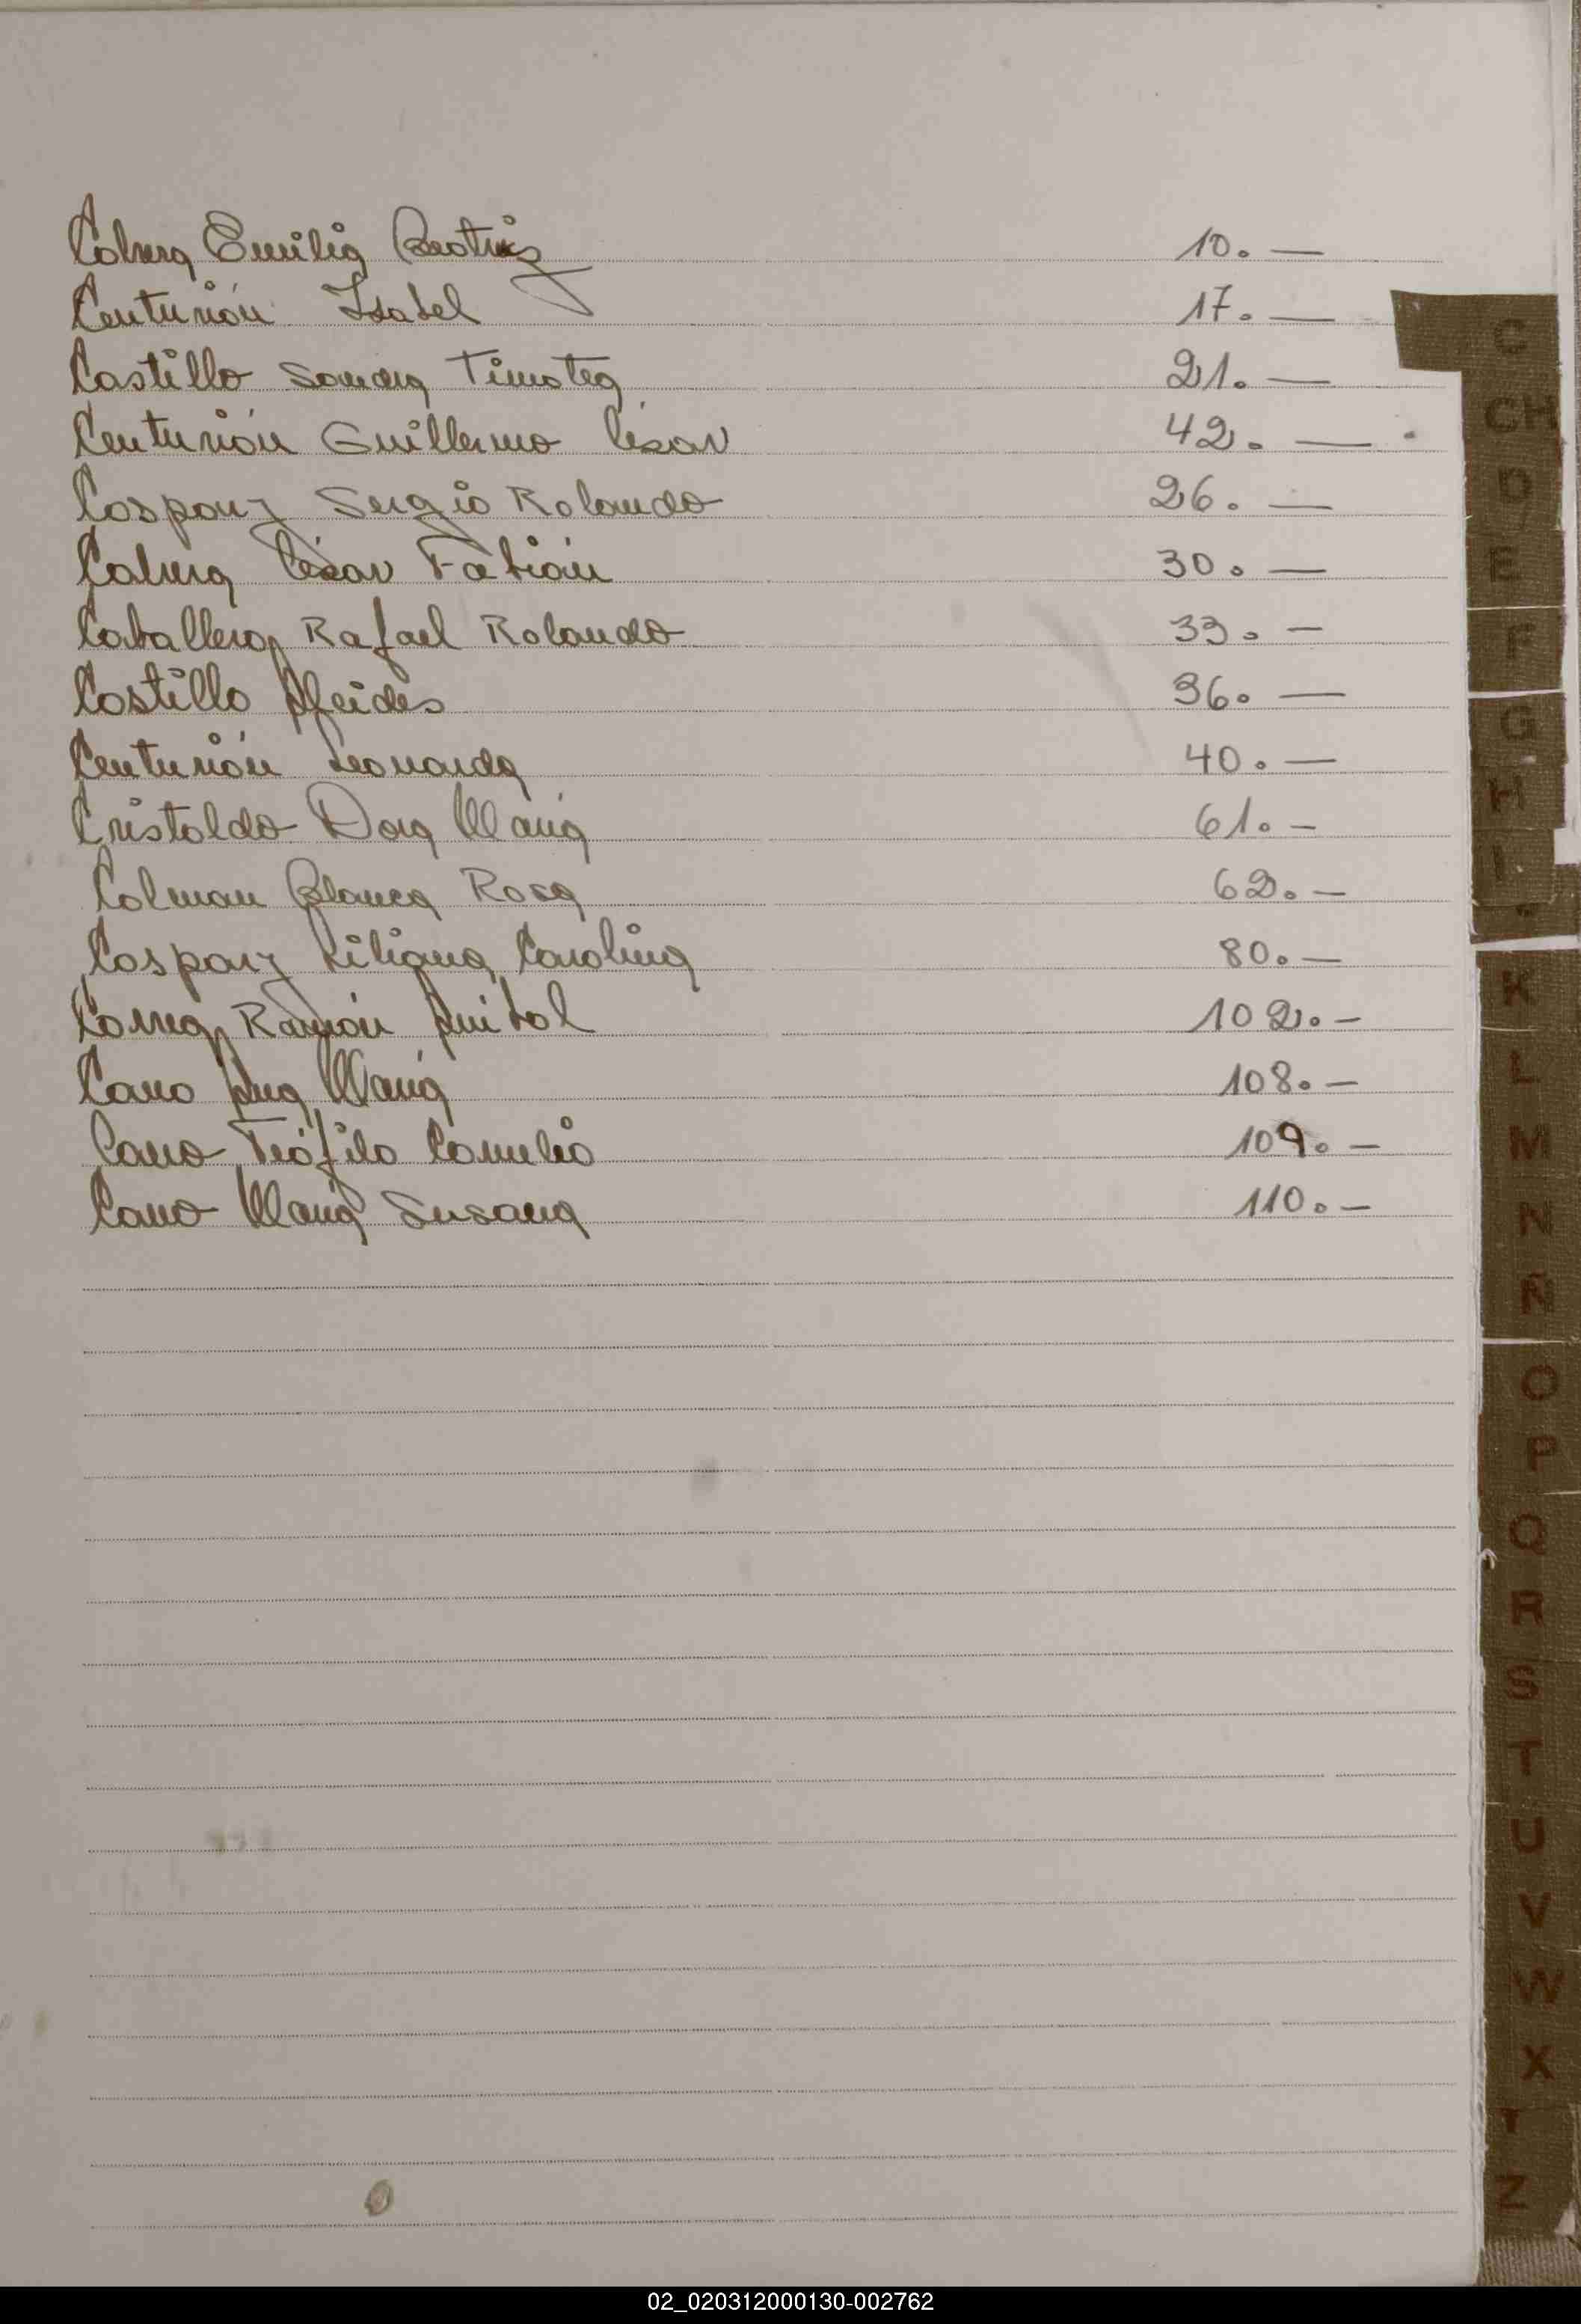 Cabrera Emilia Beatriz 10.—
Centurión Isabel 17.—
Castillo Sandra Timotea 21.—
Centurión Guillermo César 42.—
Caspary Sergio Rolando 26.—
Cabrera César Fabián 30.—
Caballero, Rafael Rolando 33.—
Castillo Alcides 36.—
Centurión Leonarda 40.—
Cristaldo Dora María 61.—
Colman Blanca Rosa 62.—
Caspary Liliana Carolina 80.—
Correa, Ramón Anibal 102.—
Cano Ana María 108.—
Cano Teófilo Cornelio 109.—
Cano María Susana 110.—
C
CH
D
E
F
G
H
I
K
L
M
N
Ñ
O
P
Q
R
S
T
U
V
W
X
Z
02_020312000130-002762